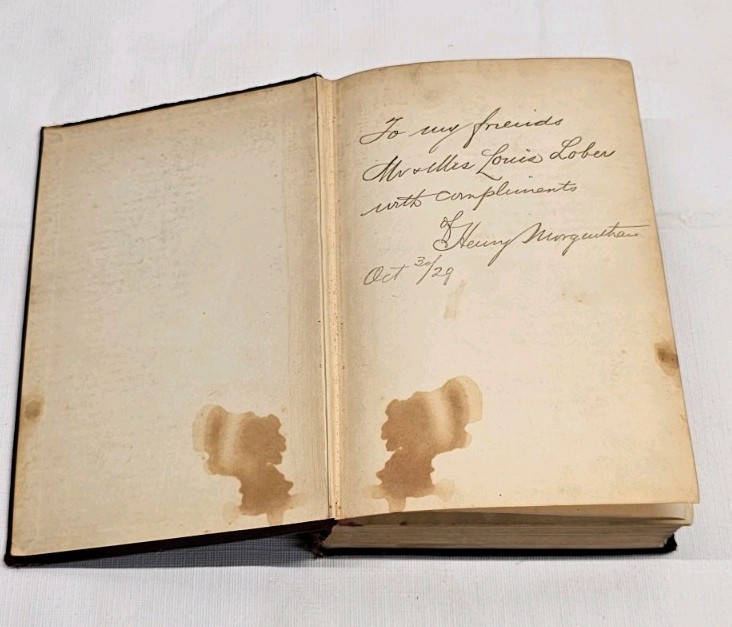 To my friends
Mr & Mrs Louis Lober
with compliments
of Henry Morgenthau
Oct 30/29